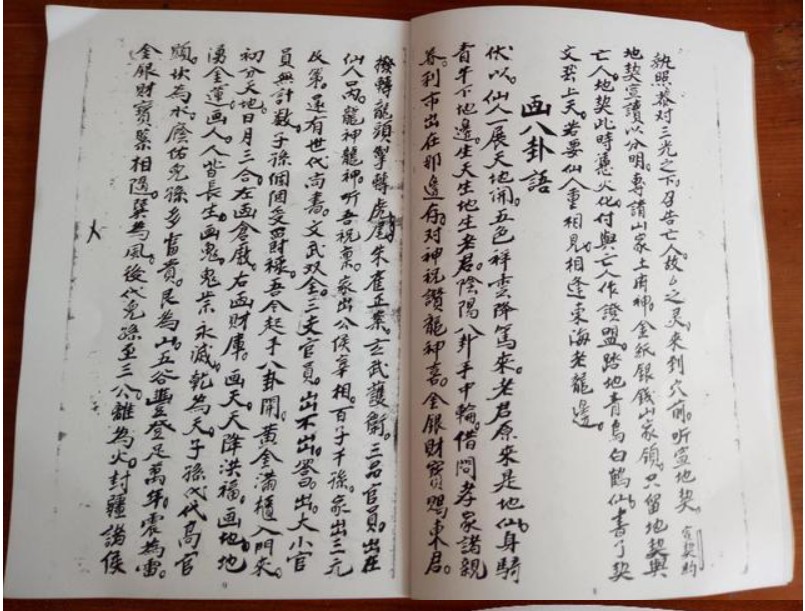 执照恭对三光之下。召告亡人故厶之灵。来到穴前。听宣地契。宣契的
地契宣读以分明。专请山家土府神。金纸银钱山家领。只留地契與
亡人。地契此时凭火化。付與亡人作證盟。踏地青鸟白鹤仙。書了契
文飛上天。若要仙人重相見。相逢東海老龍邊。
画八卦語
伏以。仙人一展天地開。五色祥雲降篤来。老君原来是地仙。身騎
青牛下地邊。生天生地生老君。陰陽八卦手中輪。借問孝家諸親
眷。利市出在那邊存。对神祝讚龍神喜。金銀財寳賜東君。
撥轉龍頭擎轉虎尾。朱雀正案。玄武護衛。三品官員。出在
仙人呙。龍神龍神。听吾祝禀。家出公侯宰相。百子千孫。家出三元
及第。還有世代尚書。文武双全。三丈官員。出不出。答曰。出。大小官
員無計數。子孫個個受爵祿。吾今起手八卦開。黄金满櫃入門来。
初分天地日月三合。左画倉廒。右画財庫。画天天降洪福。画地地
湧金蓮。画人人皆長生。画鬼鬼祟永滅。乾為天。子孫代代高官
顕。坎為水。蔭佑兒孫多富贵。艮為山。五谷豐登足萬年。震為雷。
金銀財寳業相隨。巽為風。後代兒孫至三公。離為火。封疆諸侯